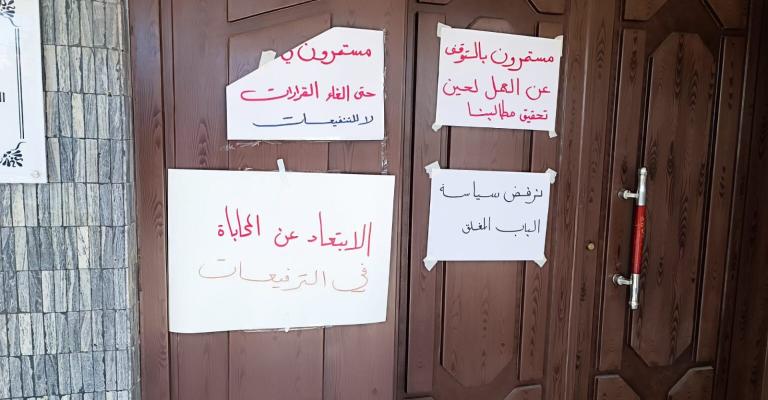 مستمرون با
حتى الغاء القرارات
لا للتنفيعات
مستمرون بالتوقف
عن العمل لحين
تحقيق مطالبنا
الابتعاد عن المحاباة
في الترفيعات
نرفض سياسة
الباب المغلق